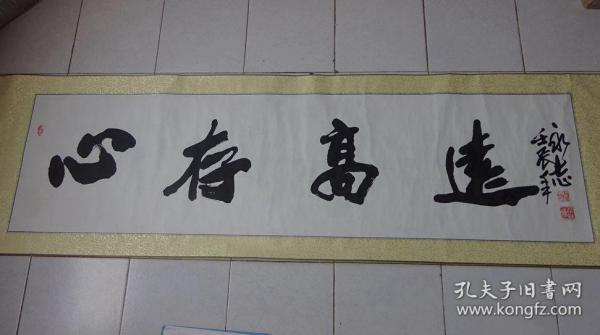 心存高遠
永志
壬辰年
孔夫子旧书网
www.kongfz.com